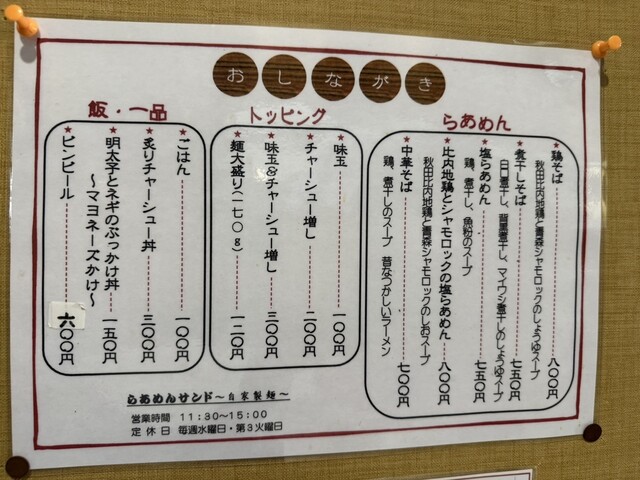 おしながき
らあめん
★鶏そば 八〇〇円
秋田比内地鶏と青森シャモロックのしょうゆスープ
★煮干しそば 七五〇円
白口煮干し、背黒煮干し、マイワシ煮干しのしょうゆスープ
★塩らあめん 七五〇円
鶏、煮干し、魚粉のスープ
★比内地鶏とシャモロックの塩らあめん 八〇〇円
秋田比内地鶏と青森シャモロックのしおスープ
★中華そば 七〇〇円
鶏、煮干しのスープ 昔なつかしいラーメン
トッピング
★味玉 一〇〇円
★チャーシュー増し 二〇〇円
★味玉&チャーシュー増し 三〇〇円
★麺大盛り(二七〇g) 一二〇円
飯・一品
★ごはん 一〇〇円
★炙りチャーシュー丼 三〇〇円
★明太子とネギのぶっかけ丼 一五〇円
~マヨネーズかけ~
★ビンビール 六〇〇円
らあめんサンド~自家製麺~
営業時間 11:30~15:00
定休日 毎週水曜日・第3火曜日